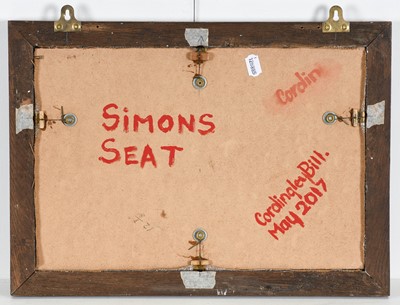 Cordin
SiMONS
SEAT
CordingleyBill.
May 2017